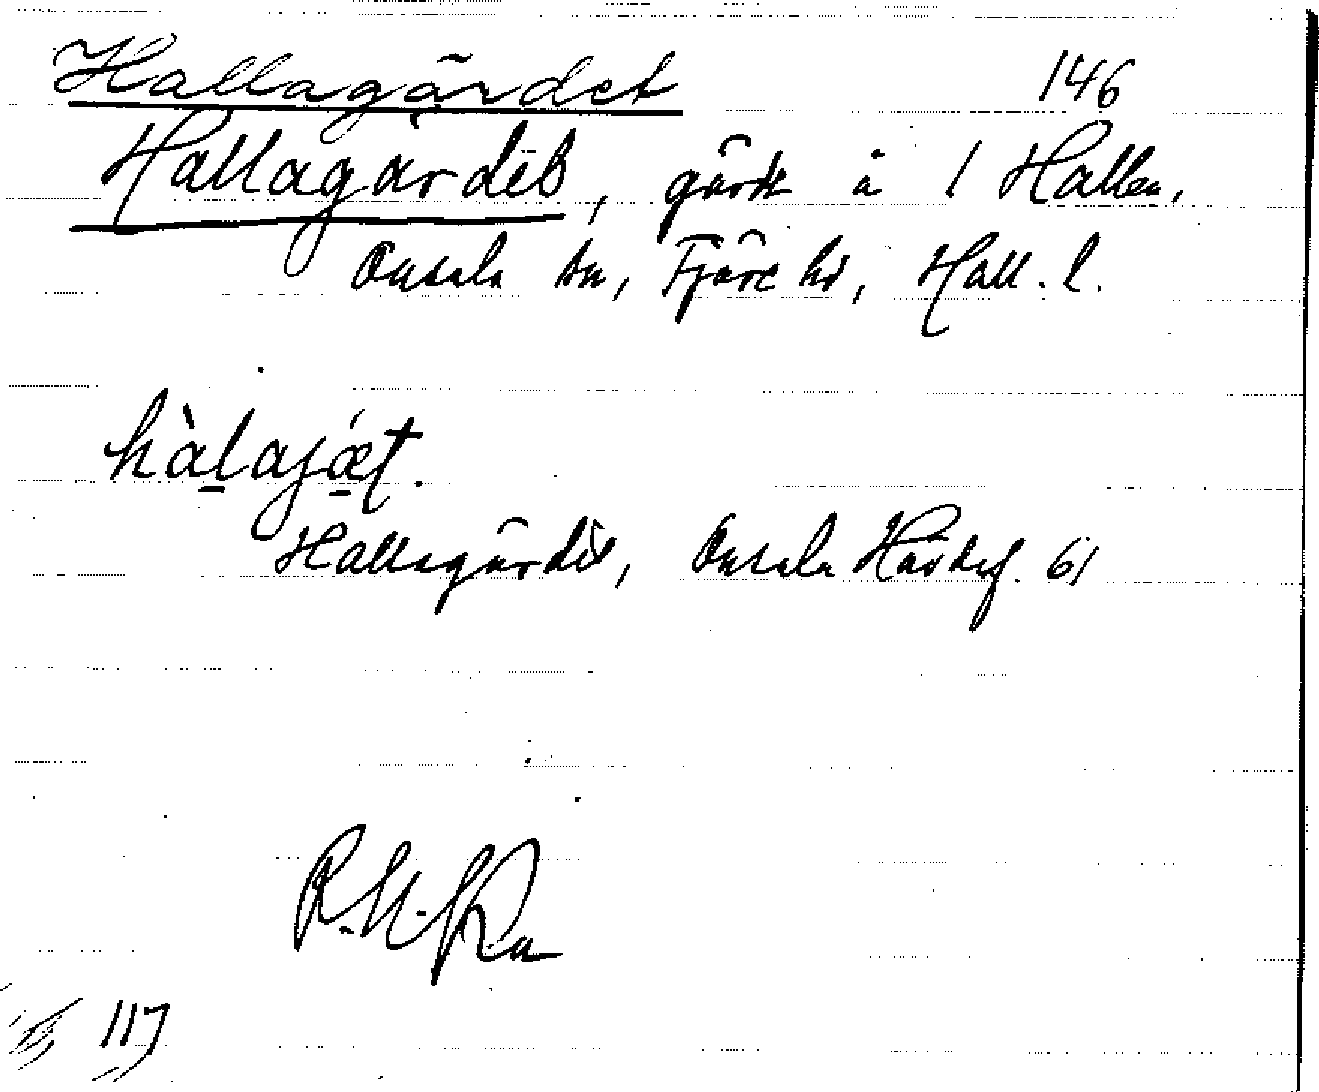 Hallagärdet 146
Hallagärdet, gärde å 1 Hallen,
Onsala sn, Fjäre hd, Hall. l.
hàlajǽt.
Hallagärdet, Onsala 61
117